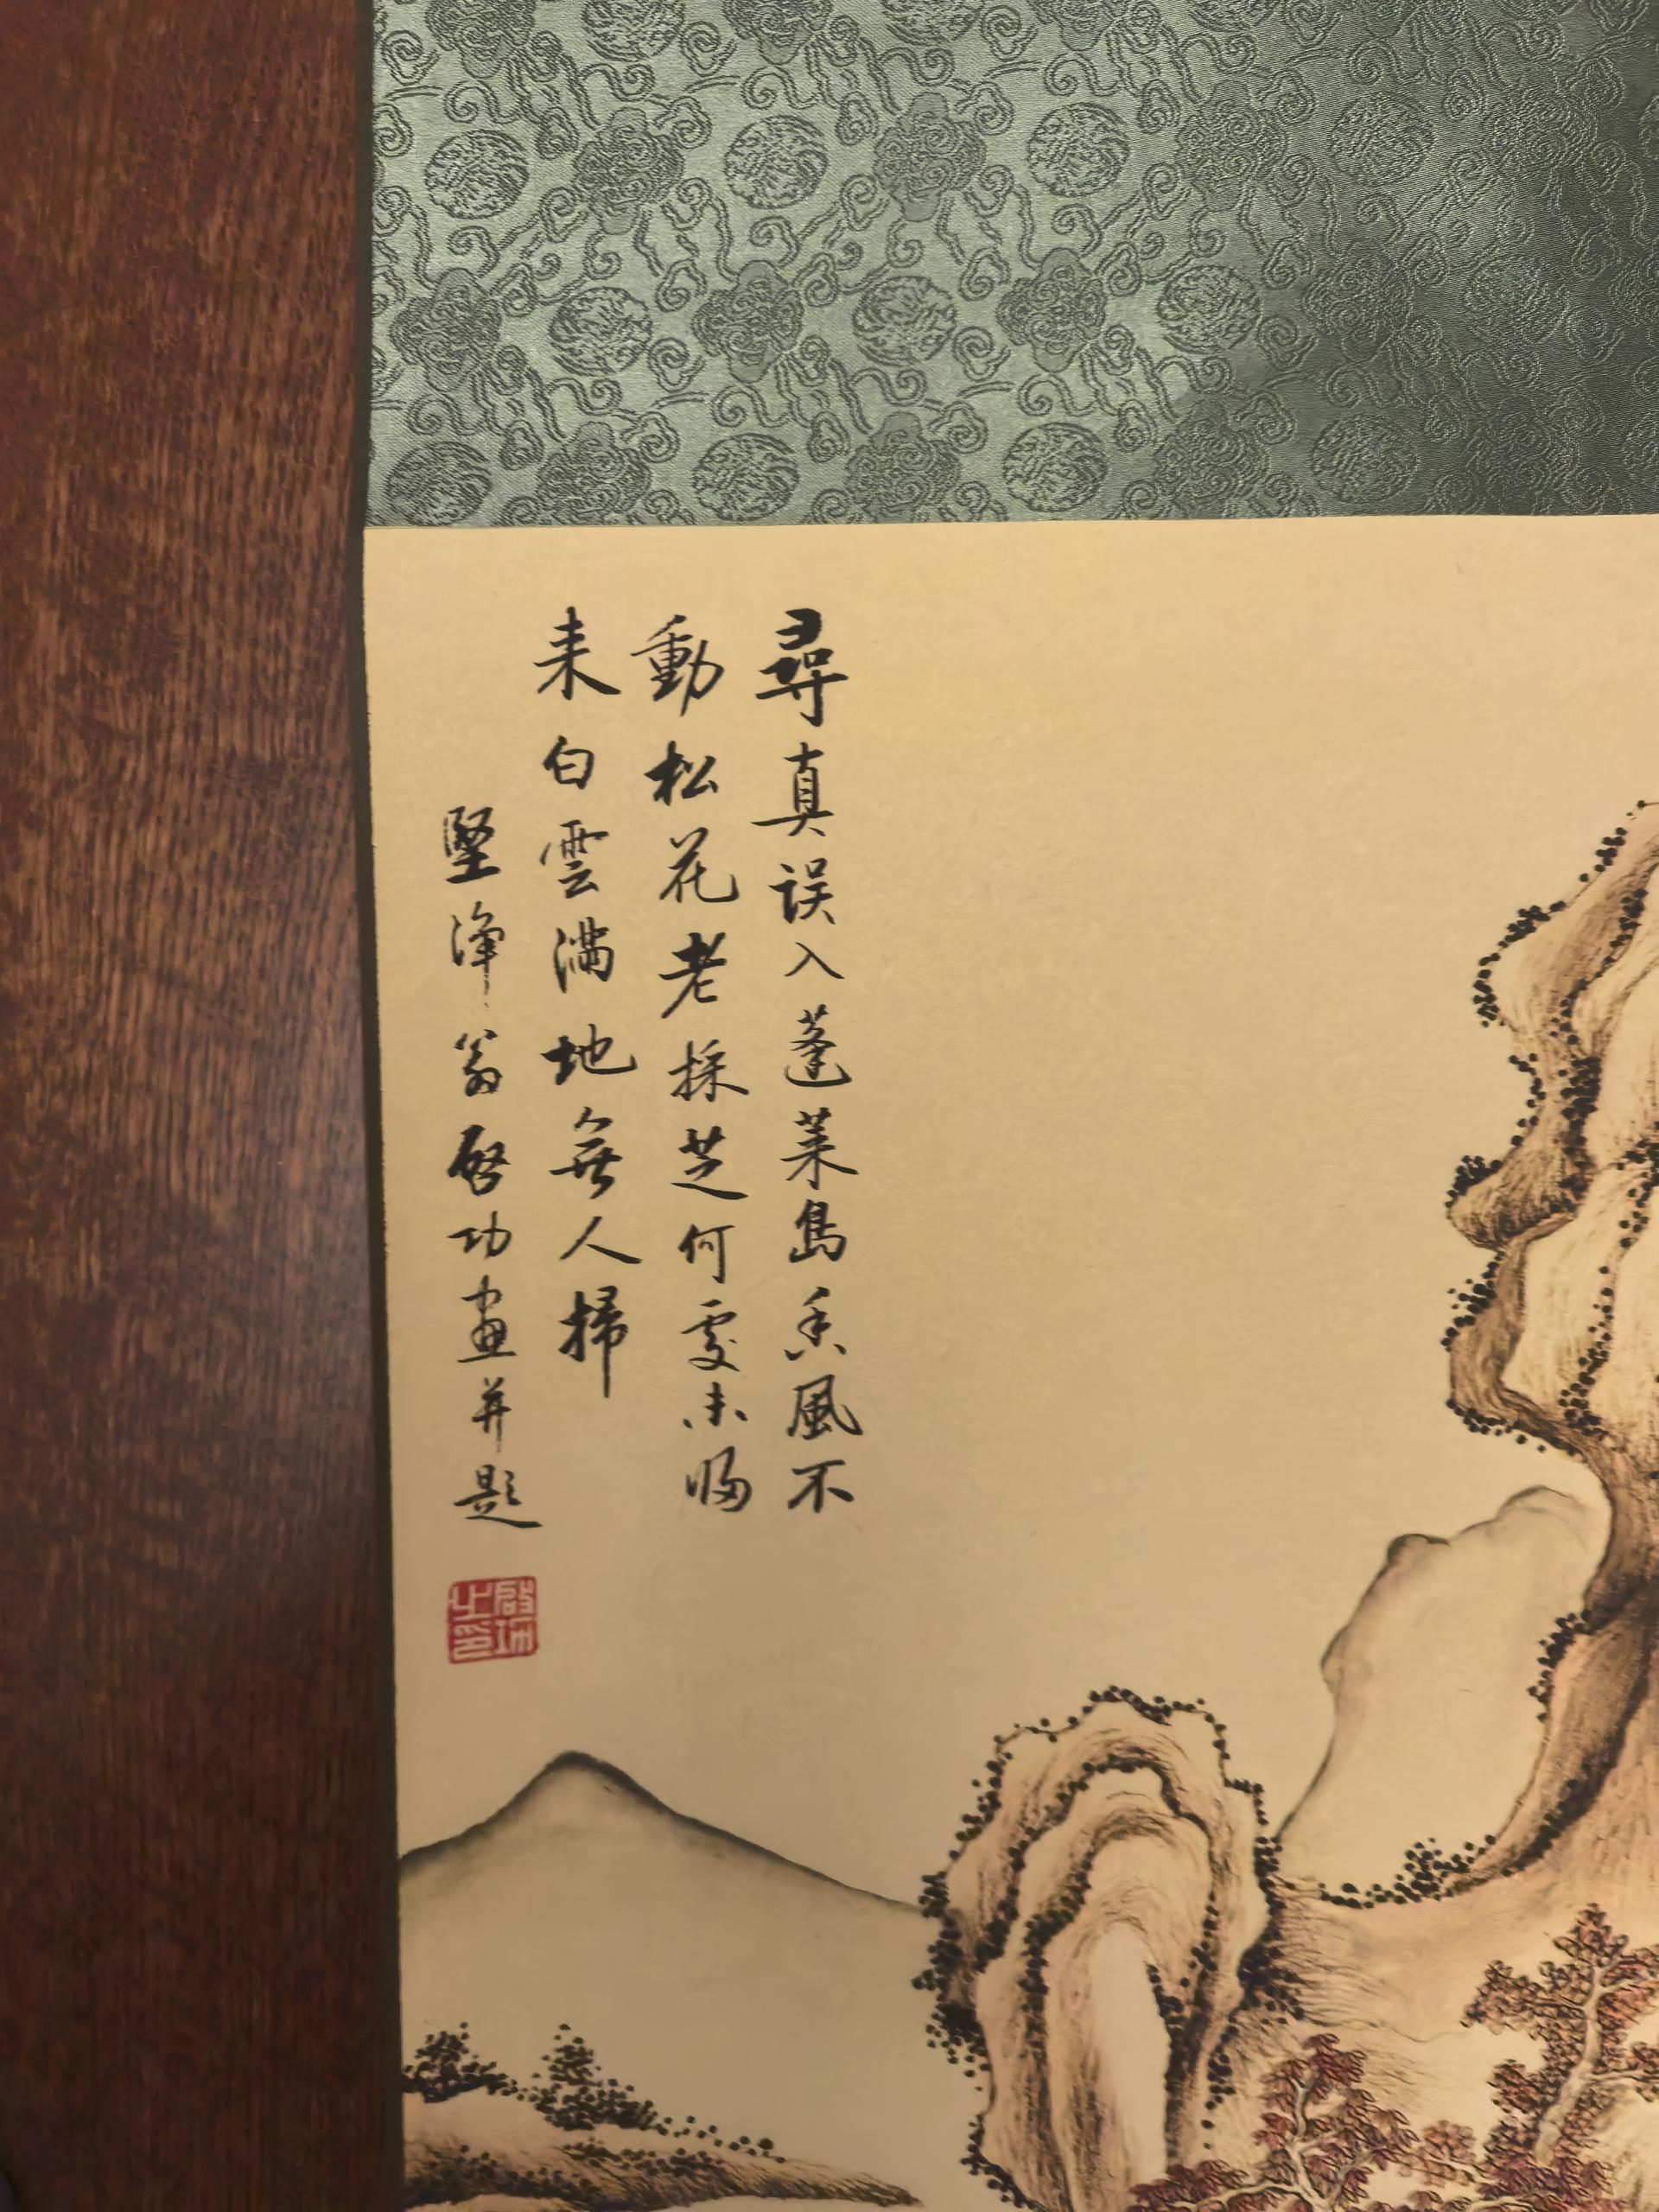 尋真误入蓬莱島香風不
動松花老採芝何處未歸
来白雲満地無人掃
堅淨翁啓功畫并題
啟功之印